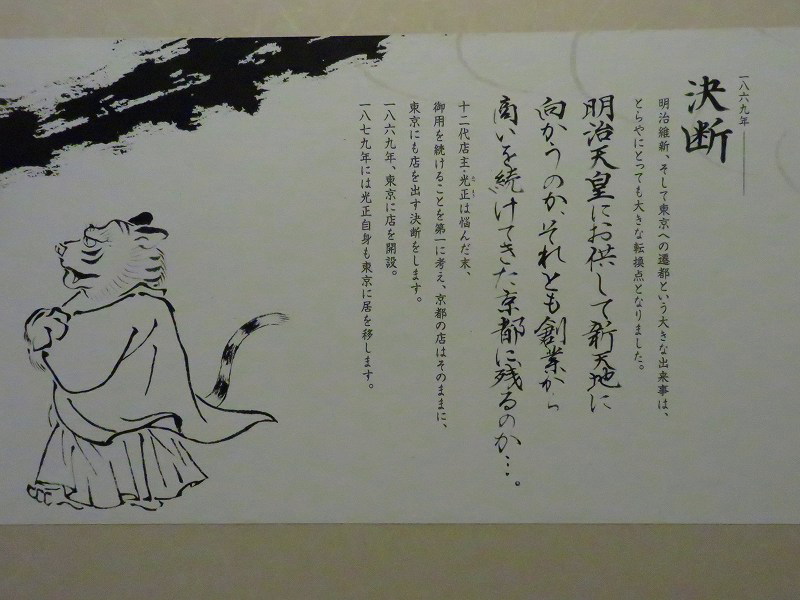 一八六九年
決断
明治維新、そして東京への遷都という大きな出来事は、
とらやにとっても大きな転換点となりました。
明治天皇にお供して新天地に
向かうのか、それとも創業から
商いを続けてきた京都に残るのか…。
十二代店主・光正は悩んだ末、
御用を続けることを第一に考え、京都の店はそのままに、
東京にも店を出す決断をします。
一八六九年、東京に店を開設。
一八七九年には光正自身も東京に居を移します。